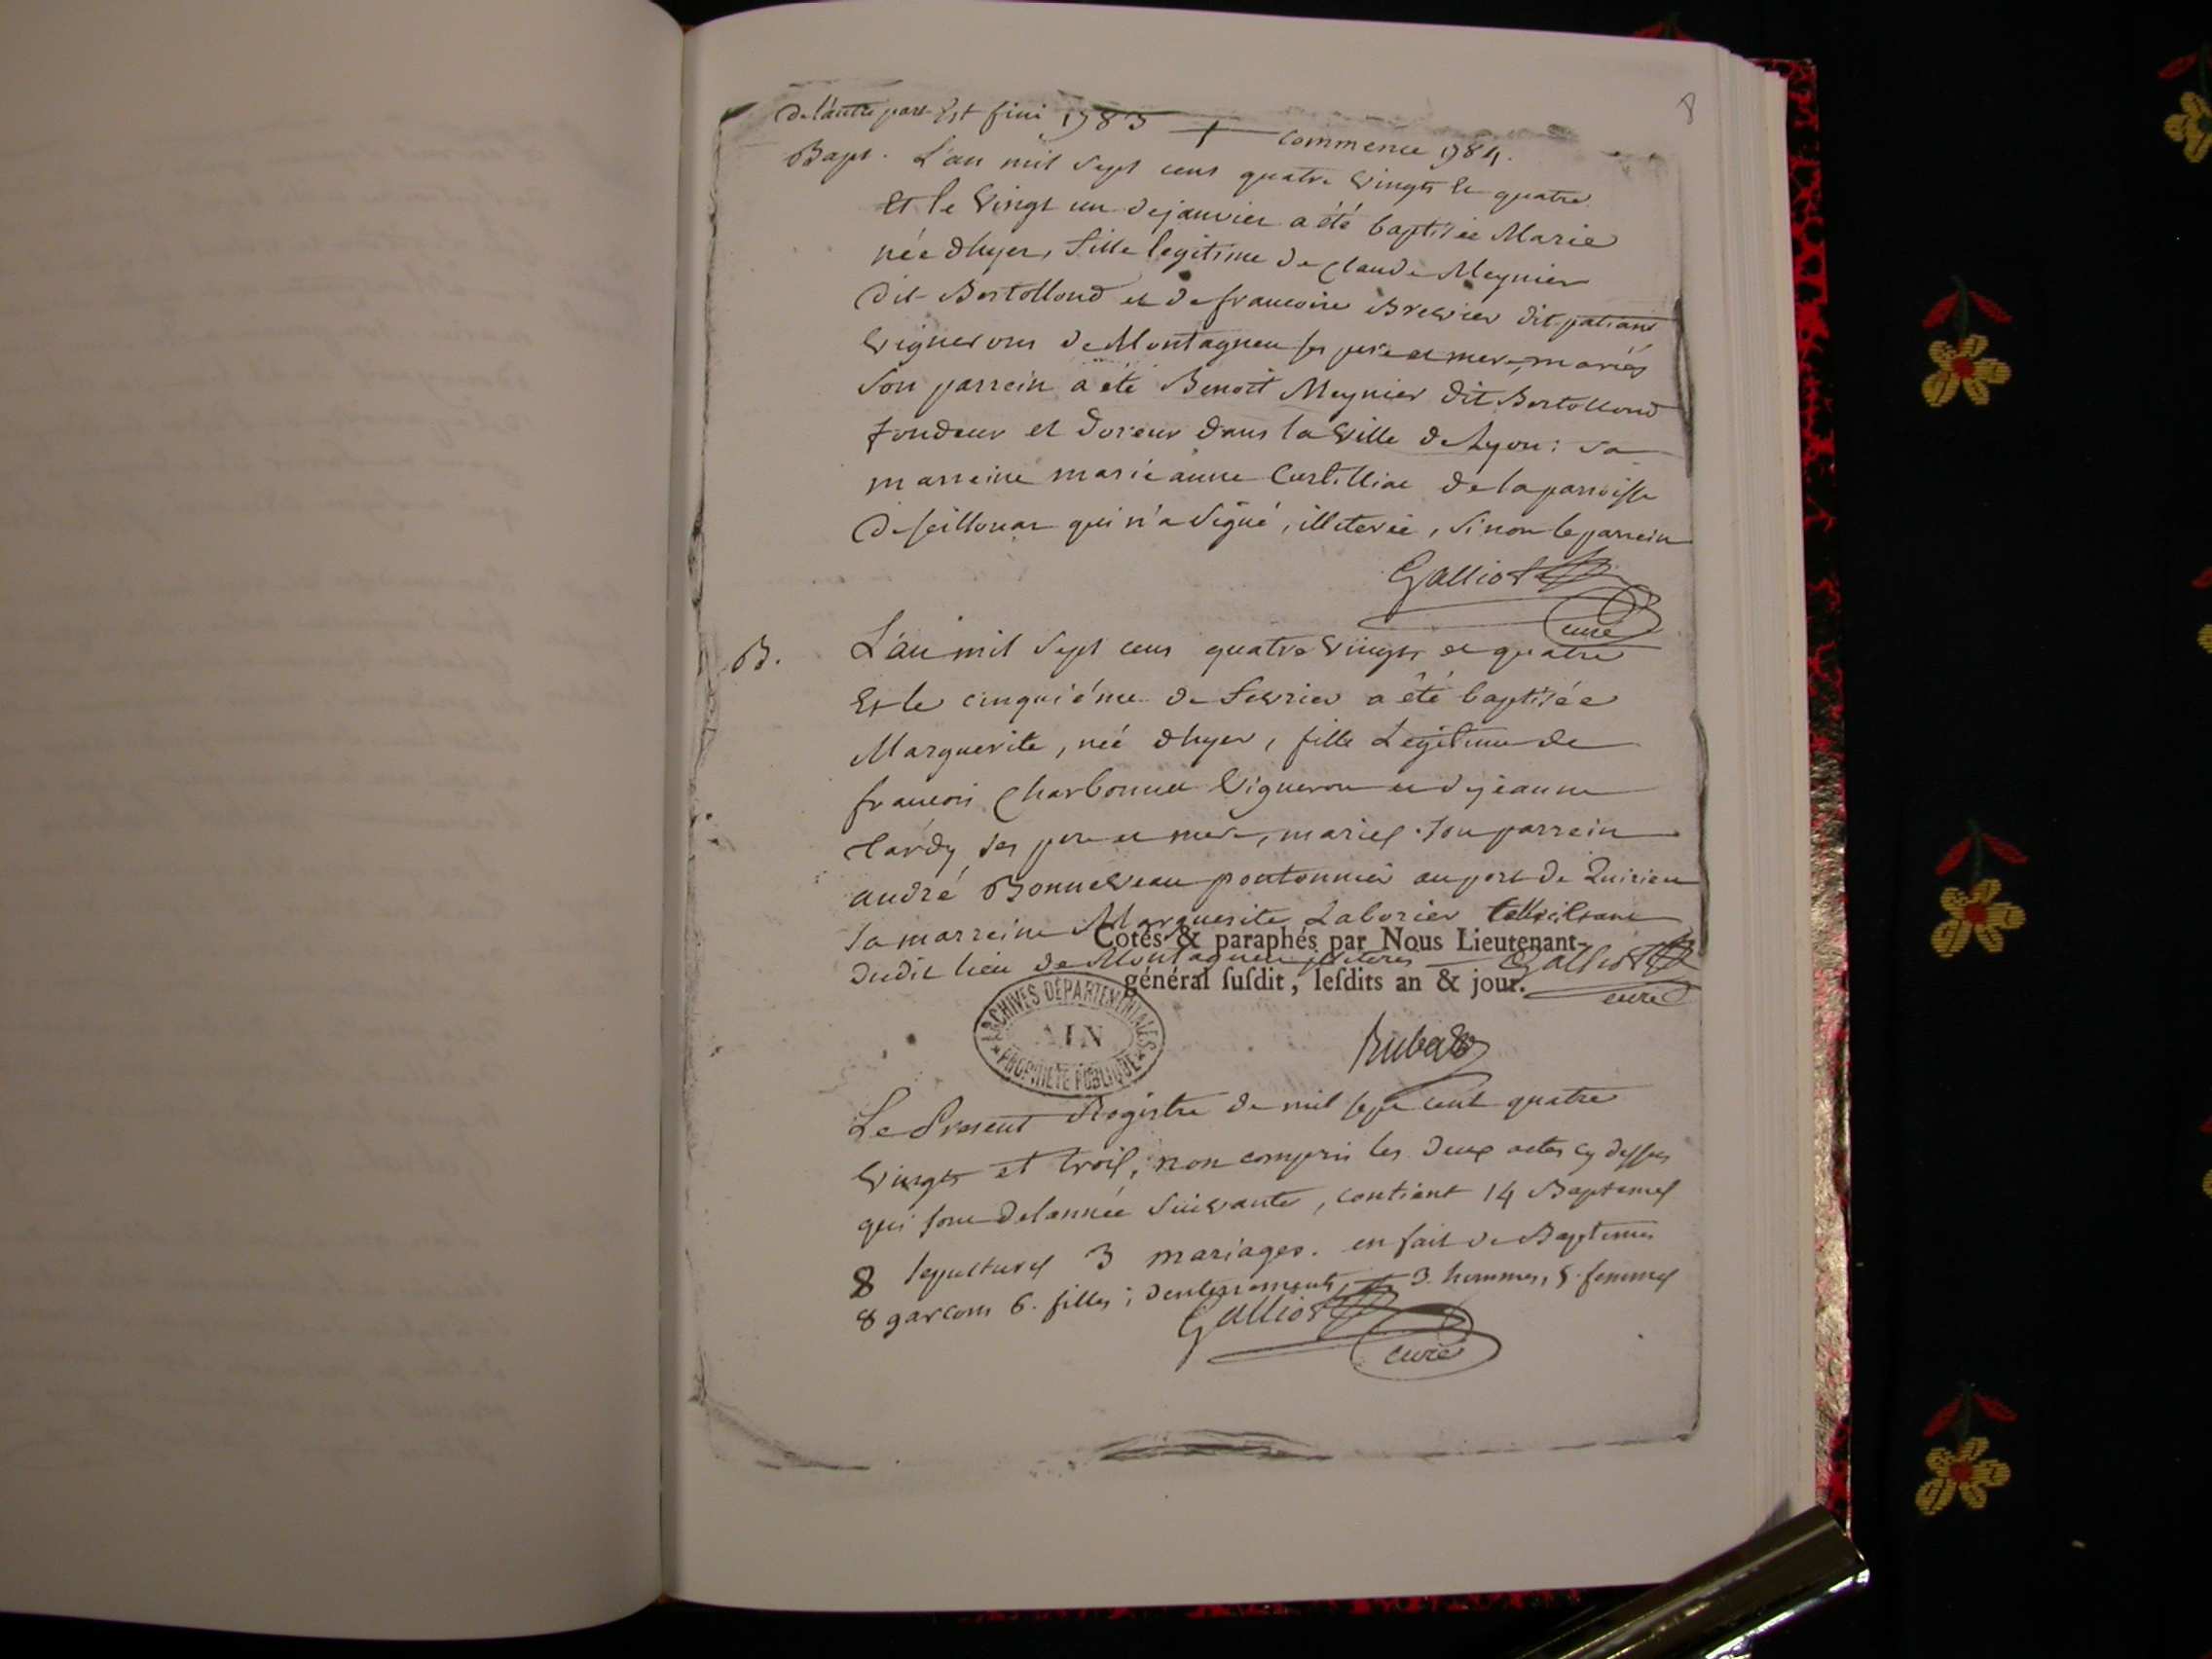 8
De l'autre part Est fini 1783 + commence 1784.
Bapt. L'an mil sept cens quatre vingts et quatre
et le vingt un de janvier a été baptisée Marie
née dhyer, fille legitime de Claude Meynier
dit Bertollond et de francoise Brevier dit
vignerons de Montagneu ses pere et mere, mariés
son parrein a été Benoit Meynier dit Bertollond
fondeur et doreur dans la ville de Lyon : sa
marreine marie anne de la parroisse
de qui n'a signé, illiterée, sinon le parrein
Galliost
curé
B. L'an mil sept cens quatre vingts et quatre
Et le cinquiéme de fevrier a été baptisée
Marguerite, née dhyer, fille Legitime de
francois Charbonnet vigneron et de jeanne
tardy ses pere et mere, mariés. son parrein
andré Bonneveau pontonnier au port de Quirieu
sa marreine Marguerite Laborier
dudit lieu de Montagneu illiteres Galliost
curé
Cotés & paraphés par Nous Lieutenant-
général ſuſdit, leſdits an & jour.
ARCHIVES DÉPARTEMENTALES
AIN
PROPRIÉTÉ PUBLIQUE
Le Present Registre de mil sept cent quatre
vingts et trois, non compris les deux actes cy dessus
qui sont de lannée suivante, contient 14 Baptemes
8 sepultures 3 mariages. en fait de Baptemes
8 garcons 6. filles ; denterrements 3. hommes, 5. femmes
Galliost
curé